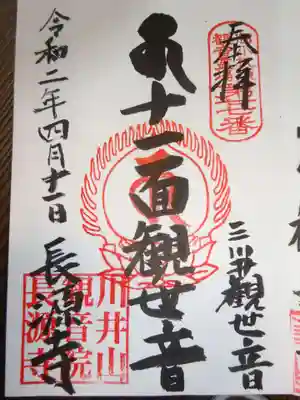 奉拝
三川井観世音
十一面観世音
令和二年四月十一日
長源寺
川井山
観音院
長源寺